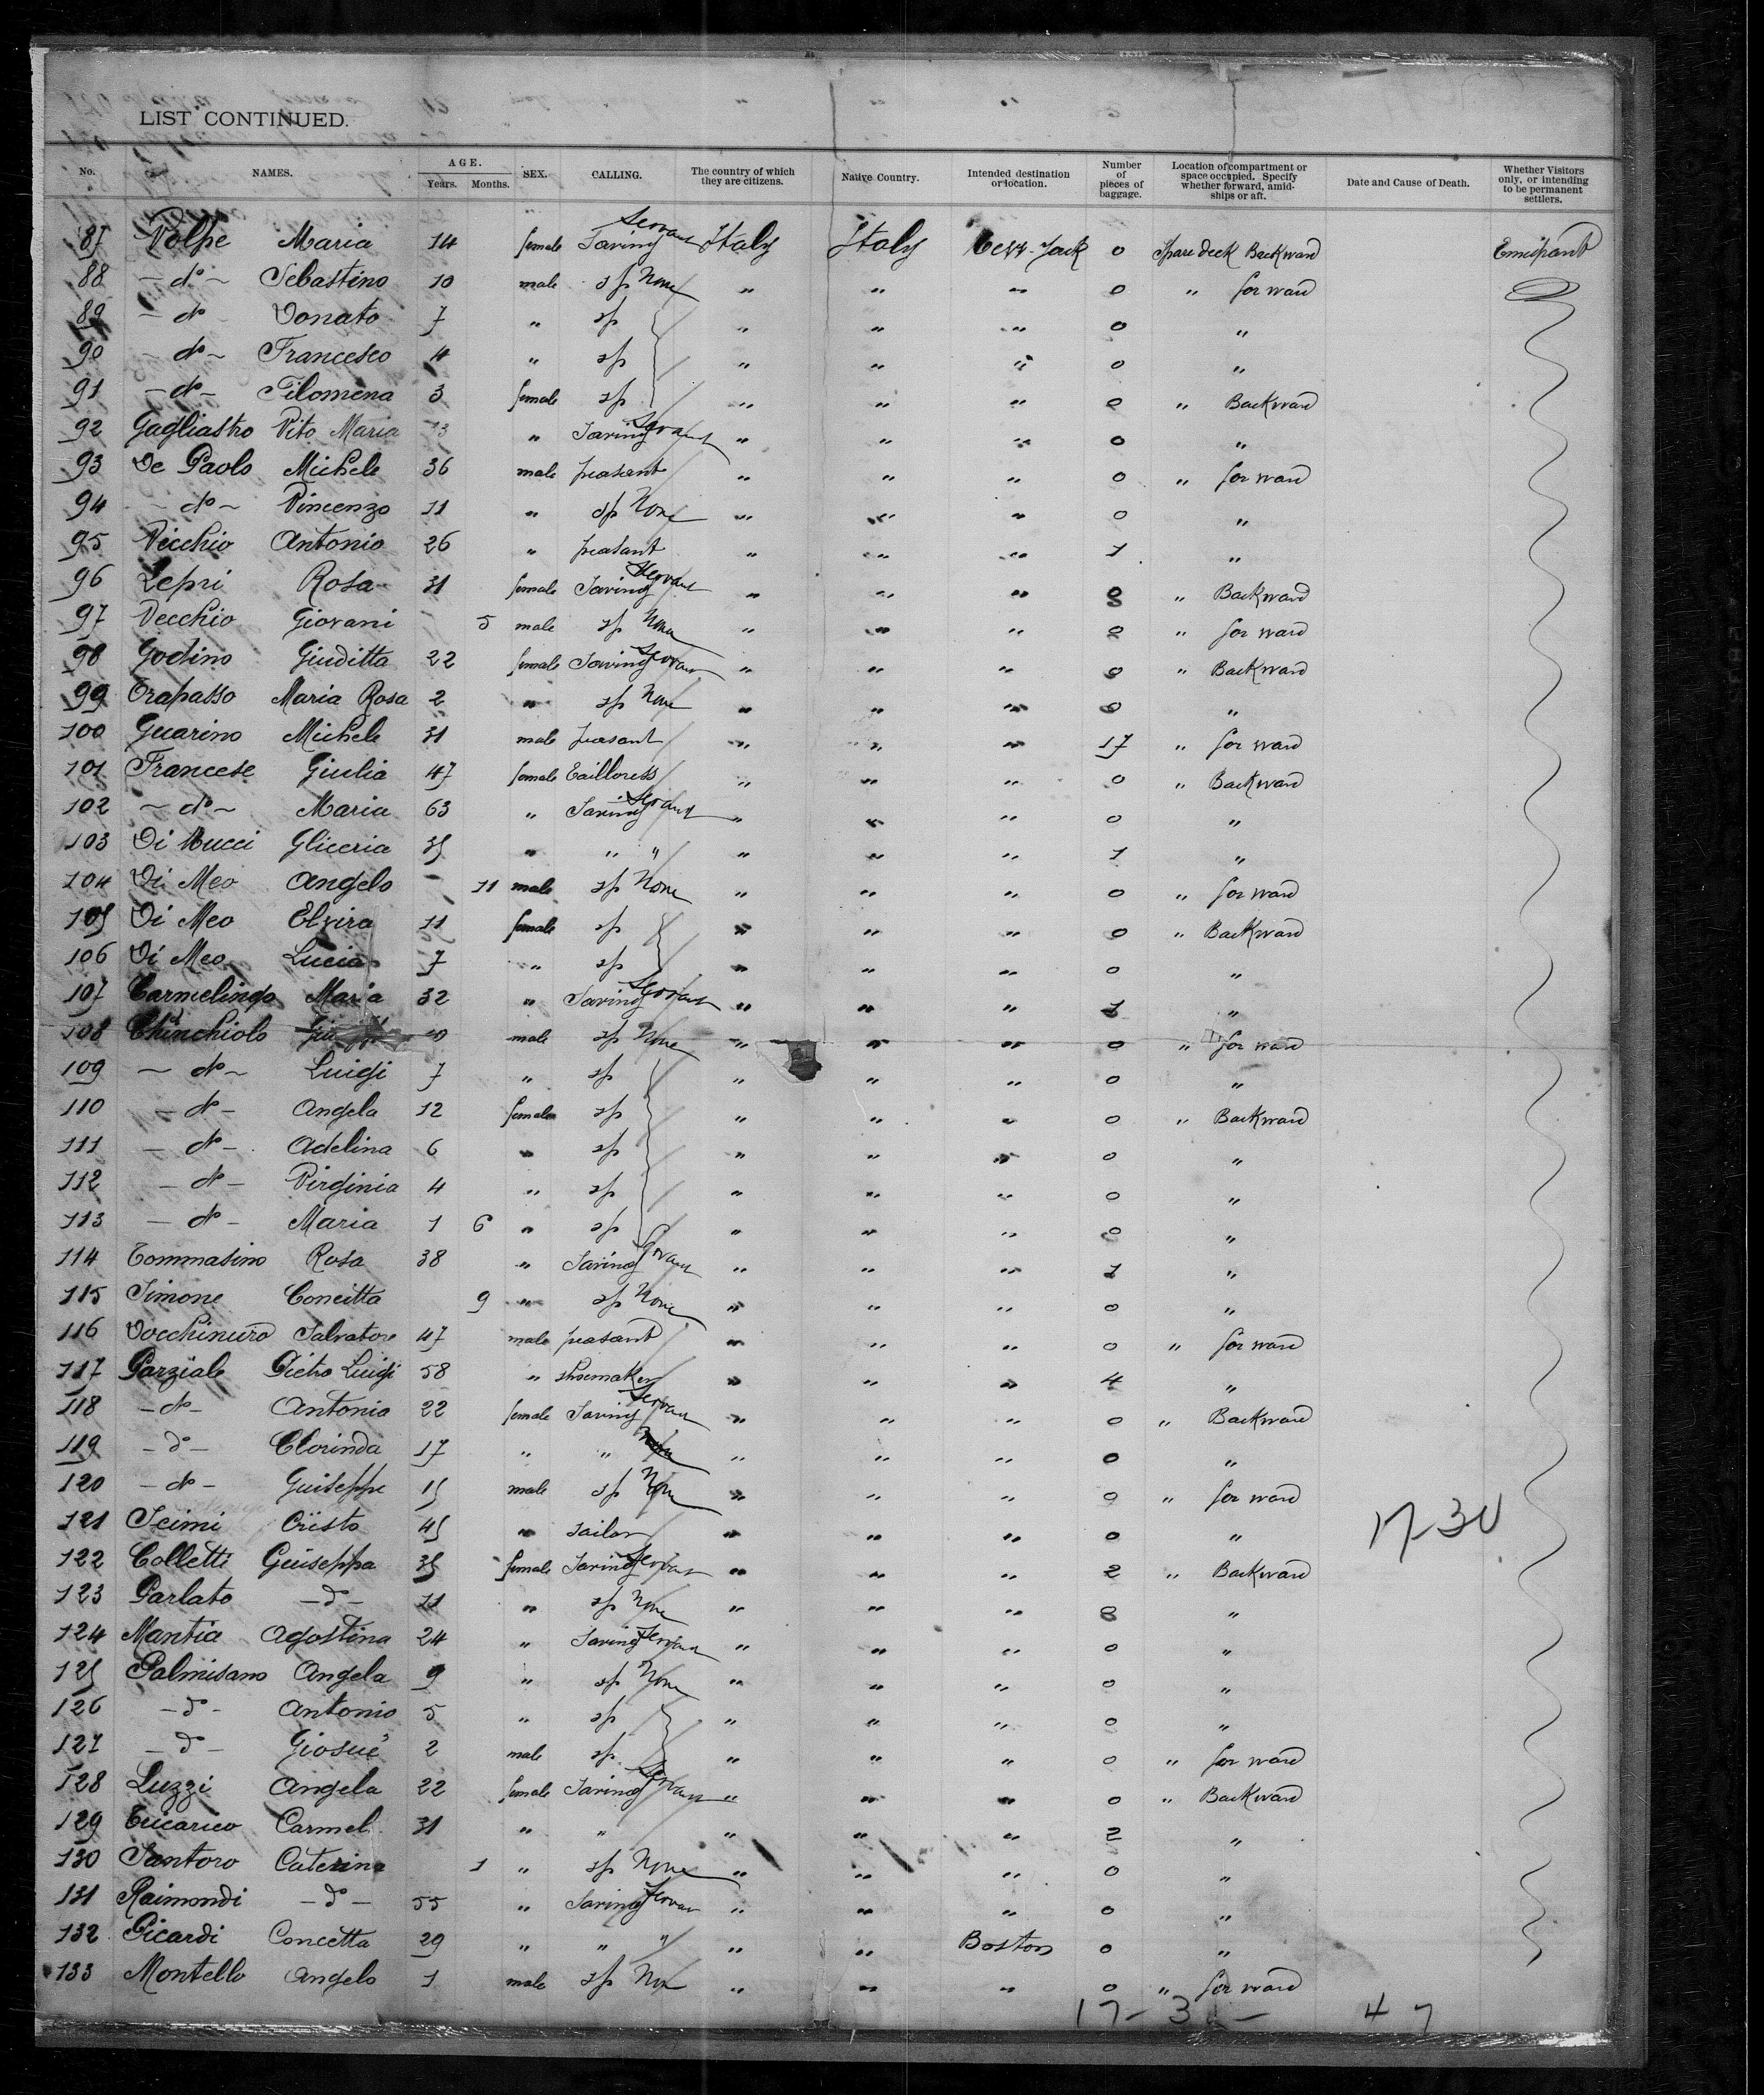 LIST CONTINUED.
No. NAMES. AGE. Years. Months. SEX. CALLING. The country of which they are citizens. Native Country. Intended destination or location. Number of pieces of baggage. Location of compartment or space occupied. Specify whether forward, amidships or aft. Date and Cause of Death. Whether Visitors only, or intending to be permanent settlers.
87 Volpe Maria 14 female Saving Servant Italy Italy New-York 0 Spare deck Backward Emigrant
88 – do – Sebastino 10 male sp None " " " 0 " for ward
89 – do Donato 7 " sp " " " 0 "
90 – do – Francesco 4 " sp " " " 0 "
91 – do – Filomena 3 female sp " " " 0 " Backward
92 Gagliastro Vito Maria 13 " Saving Servant " " " 0 "
93 De Paolo Michele 36 male peasant " " " 0 " for ward
94 – do – Vincenzo 11 " sp None " " " 0 "
95 Vecchio Antonio 26 " peasant " " " 1 "
96 Lepri Rosa 31 female Saving Servant " " " 0 " Backward
97 Vecchio Giovani 5 male sp None " " " 0 " for ward
98 Godino Giuditta 22 female Saving Servant " " " 0 " Backward
99 Trapasso Maria Rosa 2 " sp None " " " 0 "
100 Guarino Michele 31 male peasant " " " 17 " for ward
101 Francese Giulia 47 female Tailloress " " " 0 " Backward
102 – do – Maria 63 " Saving Servant " " " 0 "
103 Di Mucci Gliceria 35 " " " " " " 1 "
104 Di Meo Angelo 11 male sp None " " " 0 " for ward
105 Di Meo Elvira 11 female sp " " " 0 " Backward
106 Di Meo Lucia 7 " sp " " " 0 "
107 Carmelingo Maria 32 " Saving Servant " " " 1 "
108 Chinchiolo male sp None " " " 0 " for ward
109 – do – Luigi 7 " sp " " " 0 "
110 – do – Angela 12 female sp " " " 0 " Backward
111 – do – Adelina 6 " sp " " " 0 "
112 – do – Virginia 4 " sp " " " 0 "
113 – do – Maria 1 6 " sp " " " 0 "
114 Tommasino Rosa 38 " Saving Servant " " " 1 "
115 Simone Concitta 9 " sp None " " " 0 "
116 Vocchinuro Salvatore 47 male peasant " " " 0 " for ward
117 Parziale Pietro Luigi 58 " shoemaker " " " 4 "
118 – do – Antonia 22 female Saving Servant " " " 0 " Backward
119 – do – Clorinda 17 " " None " " " 0 "
120 – do – Guiseppe 15 male sp None " " " 0 " for ward
121 Scimi Cristo 45 " sailor " " " 0 "
17-30
122 Colletti Guiseppa 35 female Saving Servant " " " 2 " Backward
123 Parlato – do – 11 " sp None " " " 0 "
124 Mantia Agostina 24 " Saving Servant " " " 0 "
125 Palmisano Angela 9 " sp None " " " 0 "
126 – do – Antonio 5 " sp " " " 0 "
127 – do – Giosué 2 male sp " " " 0 " for ward
128 Luzzi Angela 22 female Saving Servant " " " 0 " Backward
129 Tricarico Carmel. 31 " " " " " 2 "
130 Santoro Caterina 1 " sp None " " " 0 "
131 Raimondi – do – 55 " Saving Servan " " " 0 "
132 Picardi Concetta 29 " " " " " Boston 0 "
133 Montello Angelo 1 male sp Non " " " 0 " for ward
17-3 – 47